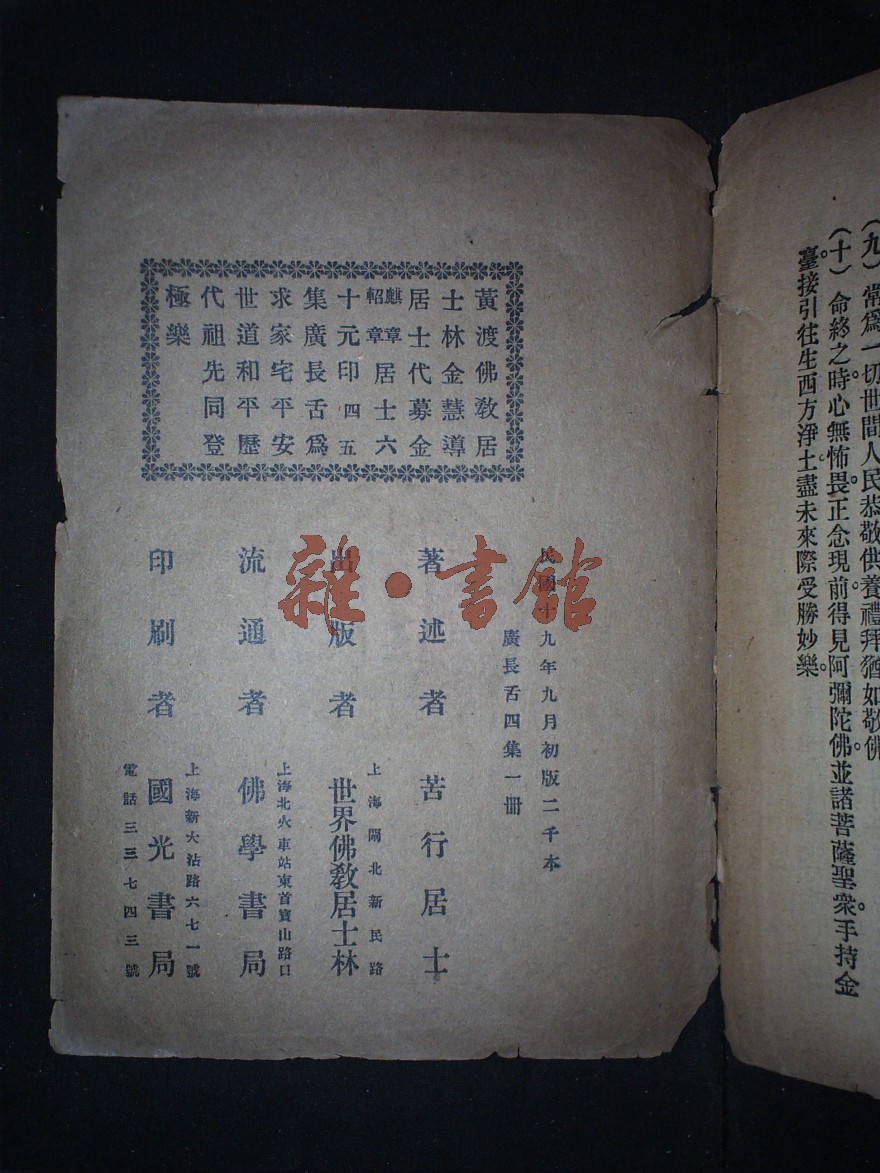 (九)常爲一切世間人民恭敬供養禮拜猶如敬佛
(十)命終之時心無怖畏。正念現前。得見阿彌陀佛。並諸菩薩聖衆。手持金
臺。接引往生西方淨土。盡未來際受勝妙樂。
黃渡佛敎居
士林金慧導
居士代募金
麒章
紹章居士六
十元印四五
集廣長舌爲
求家宅平安
世道和平歷
代祖先同登
極樂
民國十九年九月初版二千本
廣長舌四集一册
著述者 苦行居士
上海閘北新民路
出版者 世界佛敎居士林
上海北火車站東首寶山路口
流通者 佛學書局
上海新大沽路六七一號
印刷者 國光書局
電話三三七四三號
雜·書館